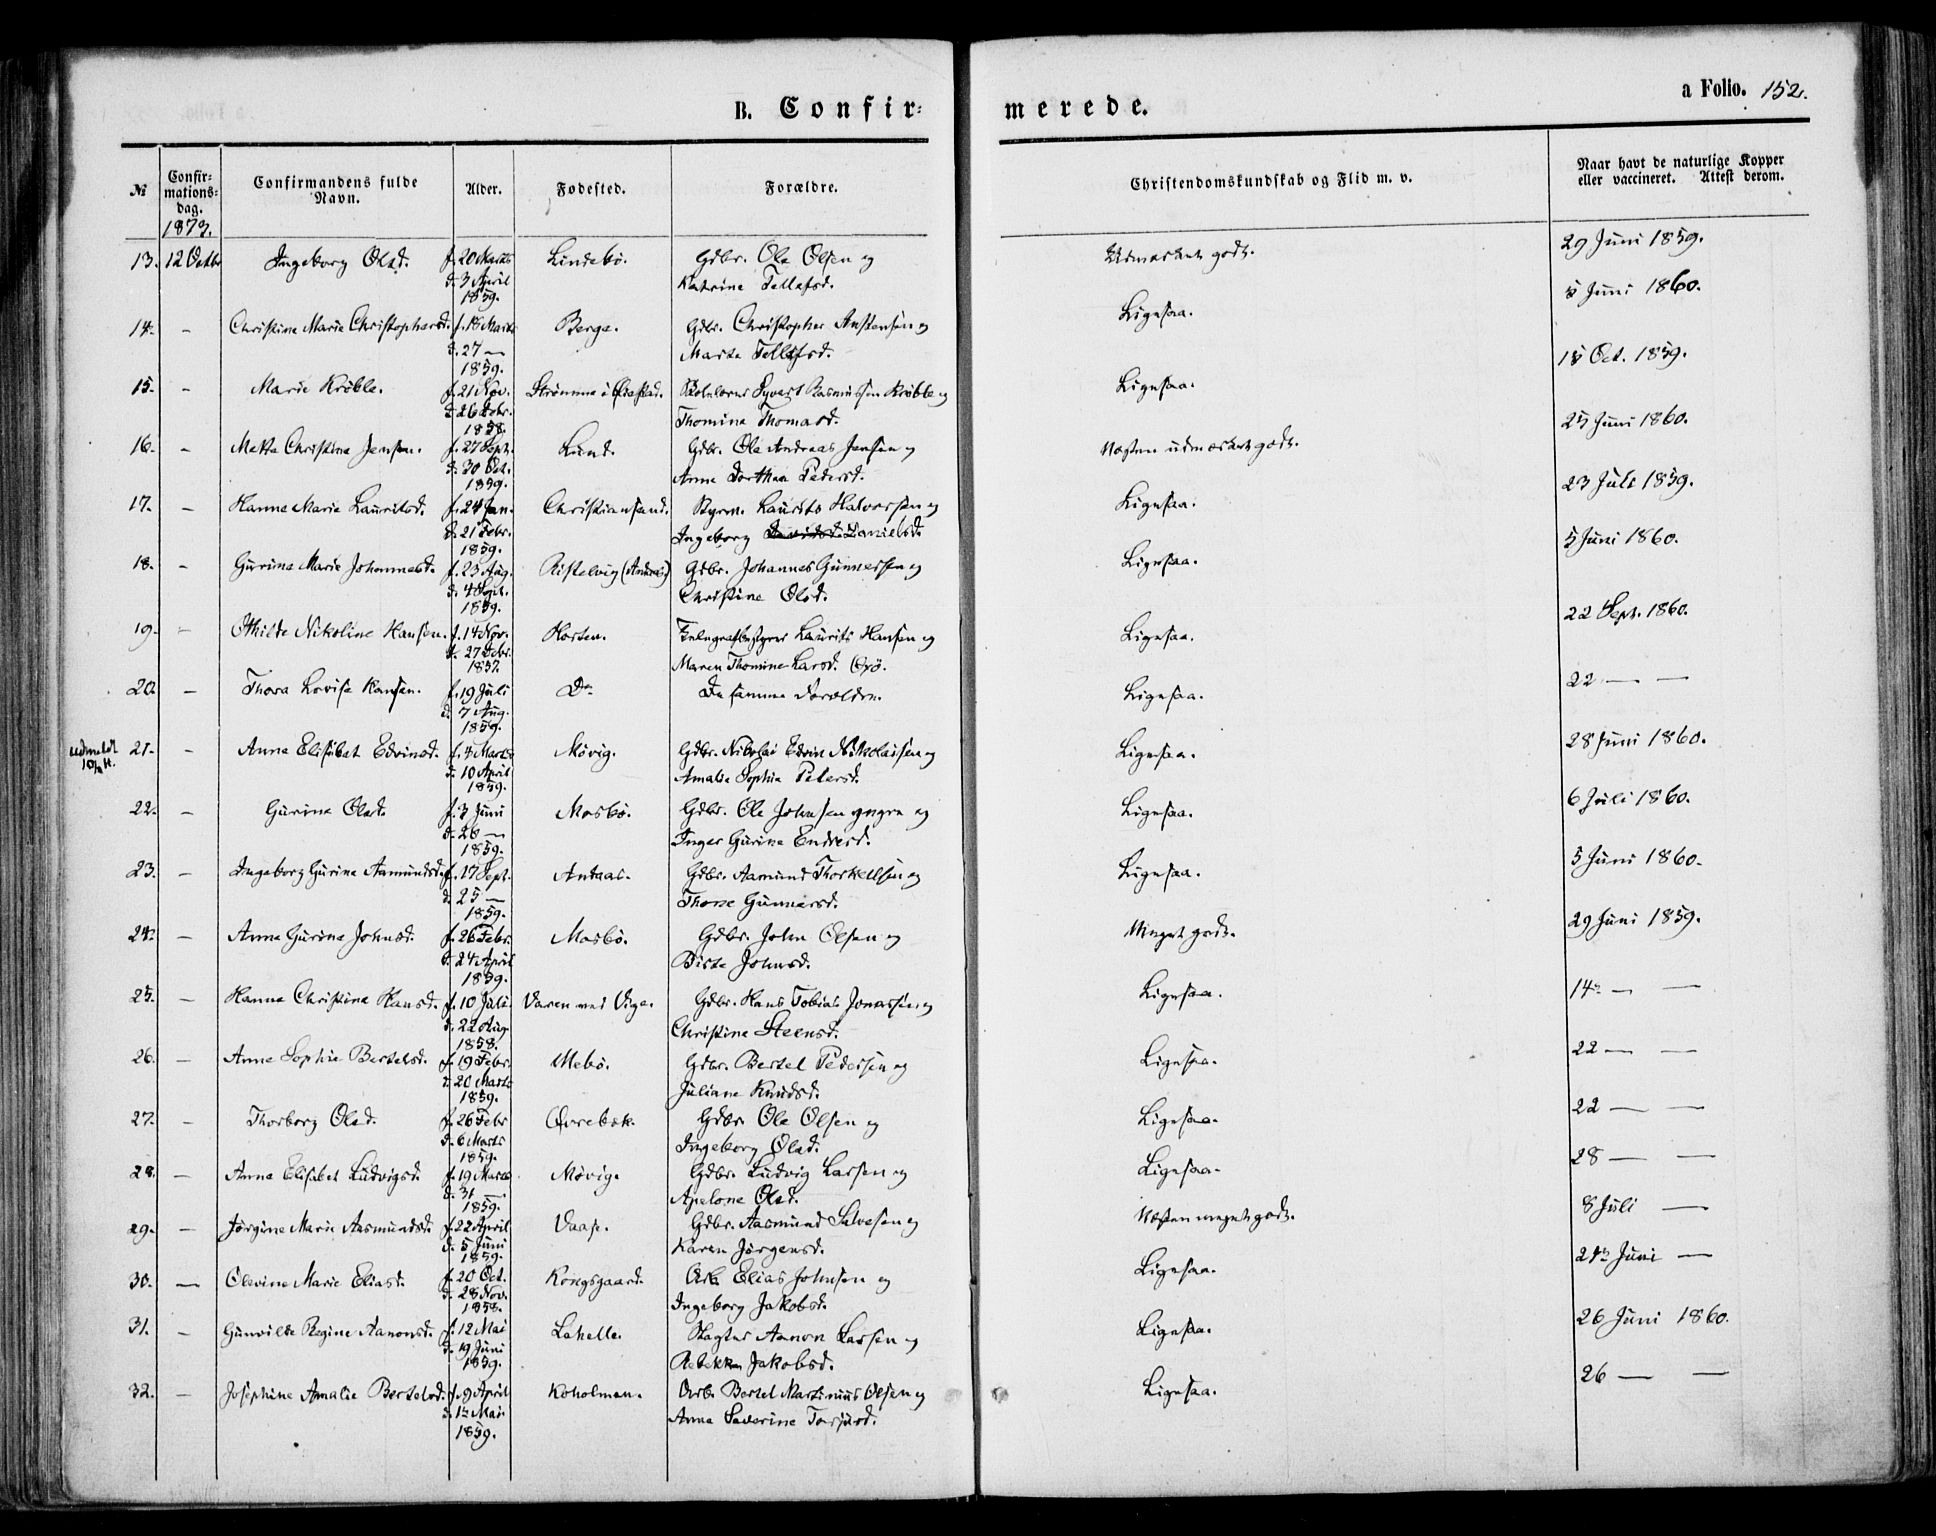 a Folio. 152.
B. Confirmerede.
№ Confirmations-dag. Confirmandens fulde Navn. Alder. Fødested. Forældre. Christendomskundskab og Flid m. v. Naar havt de naturlige Kopper eller vaccineret. Attest derom.
1873.
13. 12 Octbr Ingeborg Olsd. f. 20 Marts Lindebö. Gdbr. Ole Olsen og Udmærket godt. 29 Juni 1859.
d. 3 April Katrine Tellefsd.
1859.
14. - Christine Marie Christophersd. f. 18 Marts Berge. Gdbr. Christopher Anstensen og Ligesaa. 5 Juni 1860.
d. 27 — Marte Tellefsd.
1859.
15. - Marie Kröble. f. 21 Nov. Strömme i Skolelærer Syvert Rasmussen Kröble og Ligesaa. 15 Oct. 1859.
d. 26 Debr. Thomine Thomasd.
1858.
16. - Mette Christine Jensen. f. 27 Sept. Lund. Gdbr. Ole Andreas Jensen og Næsten udmærket godt. 25 Juni 1860.
d. 30 Oct. Anne Dorthea Pedersd.
1859.
17. - Hanne Marie Lauritsd. f. 24 Jan. Christiansand. Styrm. Laurits Halvorsen og Ligesaa. 23 Juli 1859.
d. 21 Febr. Ingeborg Danielsd.
1859.
18. - Gurine Marie Johannesd. f. 23 Aug. Ristelvig Gdbr. Johannes Gunnersen og Ligesaa. 5 Juni 1860.
d. 4 Sept. Christine Olsd.
1859.
19. - Othilde Nikoline Hansen. f. 14 Nov. Horten. Telegrafbestyrer Laurits Hansen og Ligesaa. 22 Sept. 1860.
d. 27 Debr. Maren Thomine Larsd. Oxö.
1857.
20. - Thora Lovise Hansen. f. 19 Juli Do De samme Forældre. Ligesaa. 22 — —
d. 7 Aug.
1859.
udmeldt 21. - Anne Elisabet Edvinsd. f. 4 Marts Mövig. Gdbr. Nikolai Edvin Nikolaisen og Ligesaa. 28 Juni 1860.
d. 10 April Amalie Sophie Petersd.
1859.
22. - Gurine Olsd. f. 3 Juni Mosbö. Gdbr. Ole Johnsen yngre og Ligesaa. 6 Juli 1860.
d. 26 — Inger Gurine Endresd.
1859.
23. - Ingeborg Gurine Aamundsd. f. 17 Sept. Antaas. Gdbr. Aamund Thorkellsen og Ligesaa. 5 Juni 1860.
d. 25 — Thore Gunnarsd.
1859.
24. - Anne Gurine Johnsd. f. 26 Febr. Mosbö. Gdbr. John Olsen og Meget godt. 29 Juni 1859.
d. 24 April Birte Johnsd.
1859.
25. - Hanne Christine Hansd. f. 10 Juli Varen ved Vige. Gdbr. Hans Tobias Jonassen og Ligesaa. 14 — —
d. 22 Aug. Christine Steensd.
1858.
26. - Anne Sophie Bertelsd. f. 19 Febr. Mebö. Gdbr. Bertel Pedersen og Ligesaa. 22 — —
d. 20 Marts Juliane Knudsd.
1859.
27. - Thorborg Olsd. f. 26 Febr Övrebæk. Gdbr. Ole Olsen og Ligesaa. 22 — —
d. 6 Marts Ingeborg Olsd.
1859.
28. - Anne Elisabet Ludvigsd. f. 19 Marts Mövig. Gdbr. Ludvig Larsen og Ligesaa. 28 — —
d. 31 — Apelone Olsd.
1859.
29. - Jörgine Marie Aasmundsd. f. 22 April Vaage. Gdbr. Aasmund Salvesen og Næsten meget godt. 8 Juli —
d. 5 Juni Karen Jörgensd.
1859.
30. — Olevine Marie Eliasd. f. 20 Oct. Kongsgaard. Arb. Elias Johnsen og Ligesaa. 24 Juni —
d. 28 Nov. Ingeborg Jakobsd.
1858.
31. - Gunvilde Regine Aanonsd. f. 12 Mai Lahelle. Slagter Aanon Larsen og Ligesaa. 26 Juni 1860.
d. 19 Juni Rebekka Jakobsd.
1859.
32. - Josephine Amalie Bertelsd. f. 9 April Koholmen. Arb. Bertel Martinius Olsen og Ligesaa. 26 — —
d. 1ste Mai Anne Severine Torjusd.
1859.